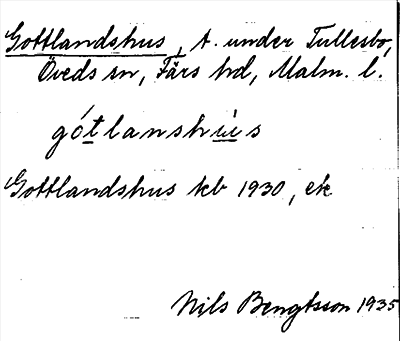 Gottlandshus, t. under Tullesbo,
Öveds sn, Färs hd, Malm. l.
gótlanshùs
Gottlandshus kb 1930, ek
Nils Bengtsson 1935